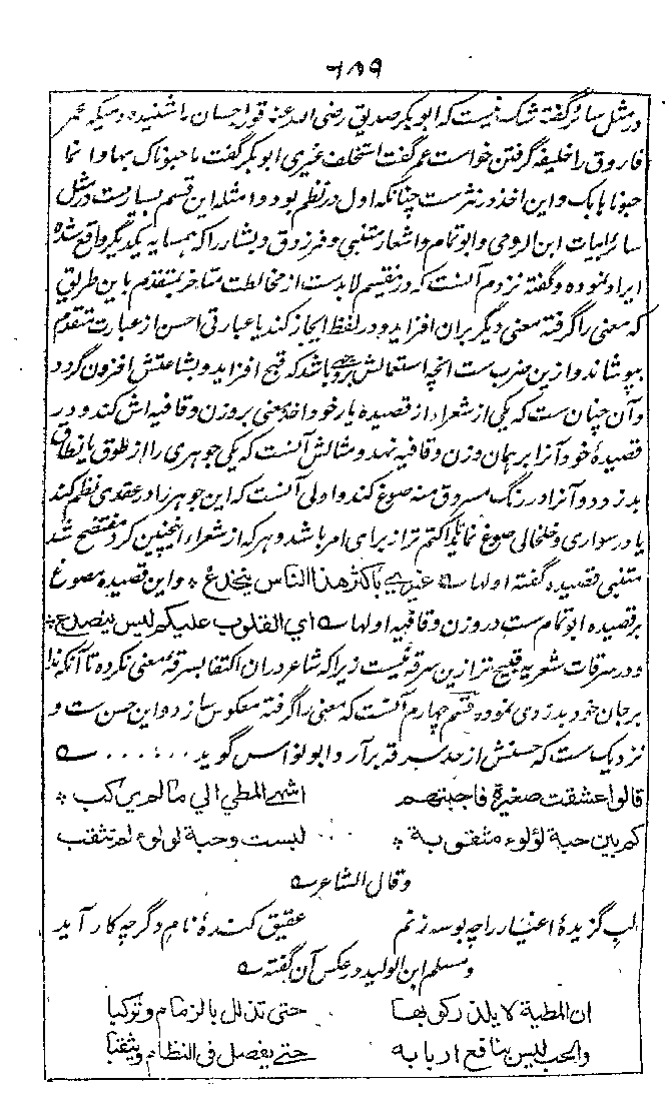 در مثل سائر گفته شک نیست که ابوبکر صدیق رضی الله عنه قول حسان را شنیده وقتیکه عمر
فاروق را خلیفه گرفتن خواست عمر گفت استخلف غیری ابوبکر گفت ما حبوناک بها و انما
حبوناها بک و این اخذ در نثرست چنانکه اول در نظم بود و امثله این قسم بسیارست در مثل
سائر ابیات ابن الرومی و ابو تمام و اشعار متنبی و فرزدق و بشار را که بهمسایه یکدیگر واقع شده
ایراد نموده و گفته نزدم آنست که درینقسم لابدست از مخالطت متاخر بمتقدم باین طریق
که معنی را گرفته معنی دیگر بران افزاید و در لفظ ایجاز کند یا عبارتی احسن از عبارت متقدم
بپوشاند و ازین ضرب ست انچه استعمالش بروجهی باشد که قبح افزاید و بشاعتش افزون گردد
و آن چنان ست که یکی از شعراء از قصیده یار خود اخذ معنی بر وزن و قافیه اش کند و در
قصیدۀ خود آنرا بر همان وزن و قافیه نهد و مثالش آنست که یکی جوهری را از طوق یا نطاق
بدزدد و آنرا در رنگ مسروق منه صوغ کند و اولی آنست که این جوهر را در عقدی نظم کند
یا در سواری و خلخالی صوغ نماید تا اکتم تر از برای امر باشد و هر که از شعراء اینچنین کرد مفتضح شد
متنبی قصیده گفته اولها ؎ غیری بأکثر هذا الناس ینخدع ٭ و این قصیده مصوغ
بر قصیده ابو تمام ست در وزن و قافیه اولها ؎ ای القلوب علیکم لیس ینصدع ٭
و در سرقات شعریه قبیح تر ازین سرقه نیست زیرا که شاعر دران اکتفا بسرقۀ معنی نکرده تا آنکه ندا
بر جان خود بدزدی نموده قسم چهارم آنست که معنی را گرفته معکوس سازد و این حسن ست و
نزدیک ست که حسنش از حد سرقه برآرد ابو نواس گوید ....... ؎
قالوا عشقت صغیرة فاجبتهم اشهی المطی الی ما لم یرکب ٭
کم بین حبة لؤلوء مثقوبة ٭ لبست وحبة لؤلوء لم تثقب
وقال الشاعر ؎
لب گزیدۀ اغیار را چه بوسه زنم عقیق کندۀ نام دگر چه کار آید
و مسلم ابن الولید در عکس آن گفته ؎
ان المطیة لا یلذ رکوبها حتی تذلل بالزمام و ترکبا
والحب لیس بنافع اربابه حتی یفصل فی النظام ویثقبا